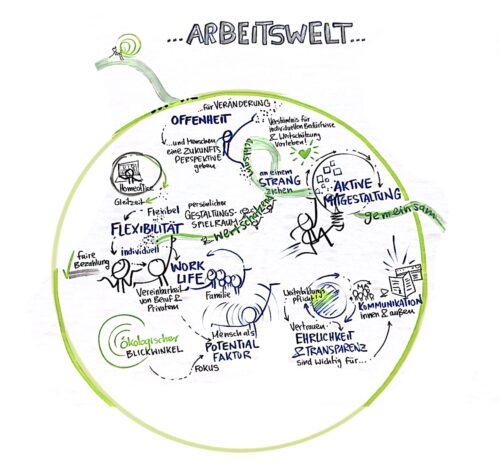 ...ARBEITSWELT...
...für VERÄNDERUNG
OFFENHEIT
...und Menschen
eine ZUKUNFTS
PERSPEKTIVE
geben
Verständnis für
individuellen Bedürfnisse
& Wertschätzung
Vorleben!
achtsam
an einem
STRANG
ziehen
AKTIVE
MITGESTALTUNG
gemeinsam
Homeoffice
Gleitzeit
Flexibel
FLEXIBILITÄT
individuell
persönlicher
GESTALTUNGS-
SPIELRAUM
wertschätzend
faire
Bezahlung
WORK
LIFE
Vereinbarkeit
von Beruf &
Privatem
Familie
Mensch als
POTENTIAL
FAKTOR
FOKUS
ökologischer
BLICKWINKEL
Weiterbildung
pflicht!
MA
KOMMUNIKATION
innen & außen
Vertrauen
EHRLICHKEIT
& TRANSPARENZ
sind wichtig für...